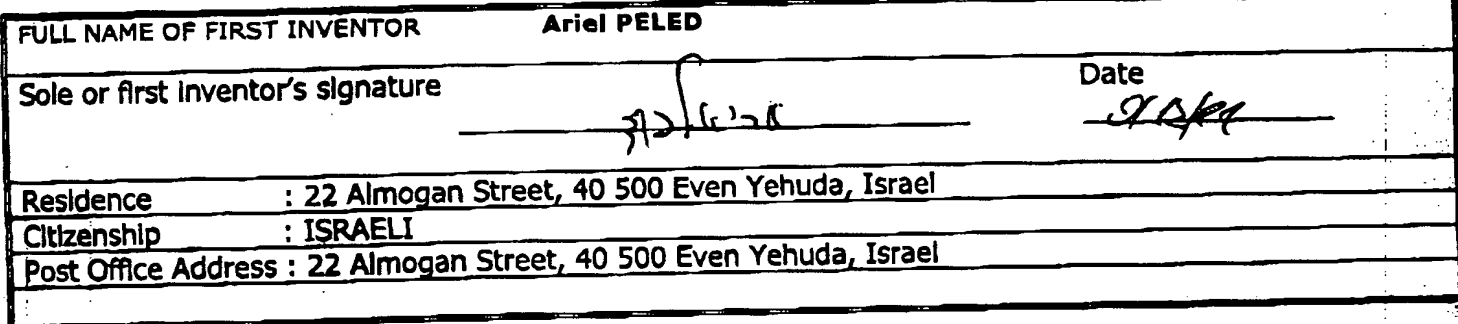 FULL NAME OF FIRST INVENTOR Ariel PELED
Sole or first inventor's signature Date
Residence : 22 Almogan Street, 40 500 Even Yehuda, Israel
Citizenship : ISRAELI
Post Office Address : 22 Almogan Street, 40 500 Even Yehuda, Israel